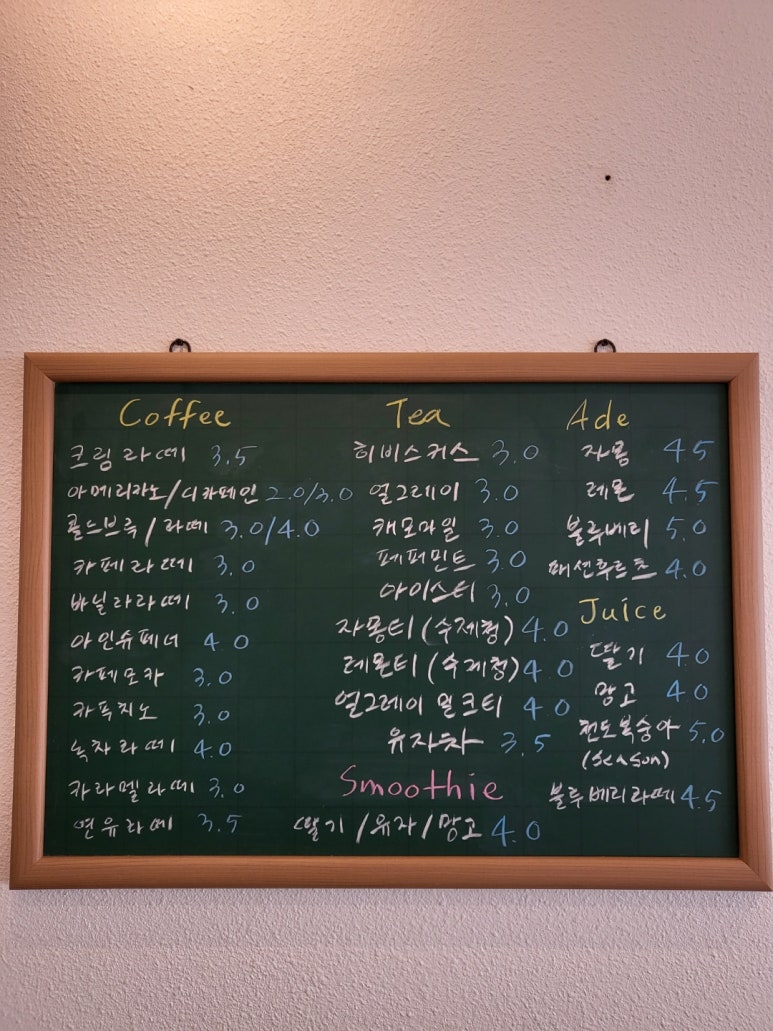 Coffee
크림라떼 3.5
아메리카노/디카페인 2.0/3.0
콜드브룩/라떼 3.0/4.0
카페라떼 3.0
바닐라라떼 3.0
아인슈페너 4.0
카페모카 3.0
카푹치노 3.0
녹차라떼 4.0
카라멜라떼 3.0
연유라떼 3.5
Tea
히비스커스 3.0
얼그레이 3.0
캐모마일 3.0
페퍼민트 3.0
아이스티 3.0
자몽티(수제청) 4.0
레몬티(수제청) 4.0
얼그레이 밀크티 4.0
유자차 3.5
Smoothie
딸기/유자/망고 4.0
Ade
자몽 4.5
레몬 4.5
블루베리 5.0
패션후르츠 4.0
Juice
딸기 4.0
망고 4.0
천도복숭아 5.0
(season)
블루베리라떼 4.5